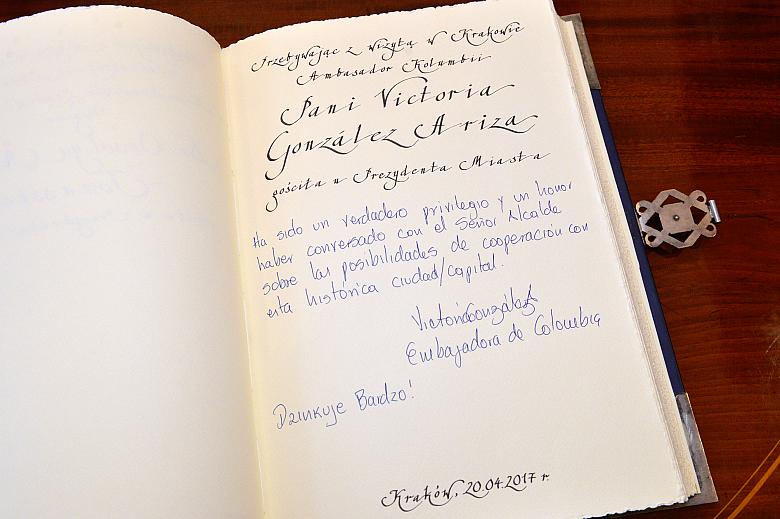 Przebywając z wizytą w Krakowie
Ambasador Kolumbii
Pani Victoria
González Ariza
gościła u Prezydenta Miasta
Ha sido un verdadero privilegio y un honor
haber conversado con el Señor Alcalde
sobre las posibilidades de cooperación con
esta histórica ciudad/capital.
Victoria González
Embajadora de Colombia
Dzinkuje Bardzo!
Kraków, 20.04.2017 r.